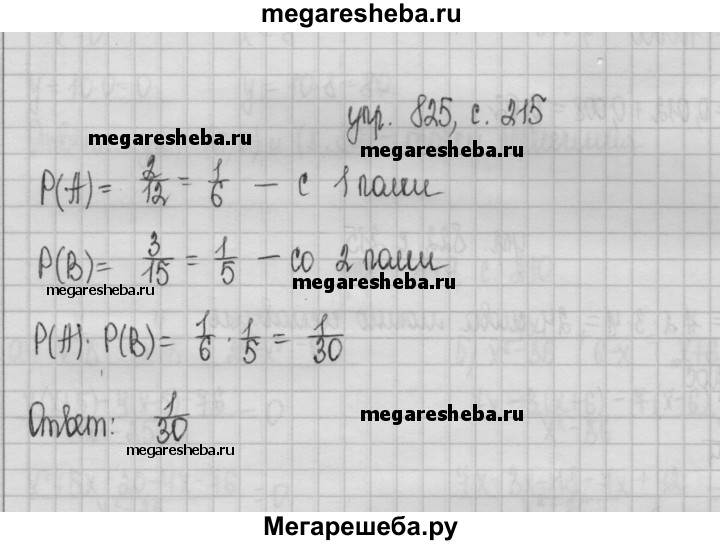 megaresheba.ru
упр. 825, с. 215
megaresheba.ru
megaresheba.ru
P(A) = 2/12 = 1/6 — с 1 пачки
P(B) = 3/15 = 1/5 — со 2 пачки
megaresheba.ru
megaresheba.ru
P(A) · P(B) = 1/6 · 1/5 = 1/30
Ответ: 1/30
megaresheba.ru
megaresheba.ru
Мегарешеба.ру